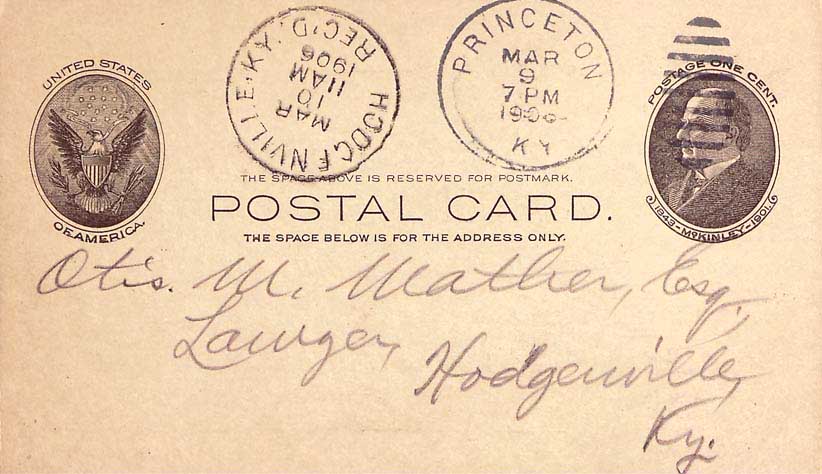 UNITED STATES
OF AMERICA.
HODGENVILLE. KY.
REC'D.
MAR
10
11 AM
1906
PRINCETON
MAR
9
7 PM
1906
KY
POSTAGE ONE CENT.
1843-McKINLEY-1901.
THE SPACE ABOVE IS RESERVED FOR POSTMARK.
POSTAL CARD.
THE SPACE BELOW IS FOR THE ADDRESS ONLY.
Otis. M. Mather, Esq,
Lawyer,
Hodgenville,
Ky.